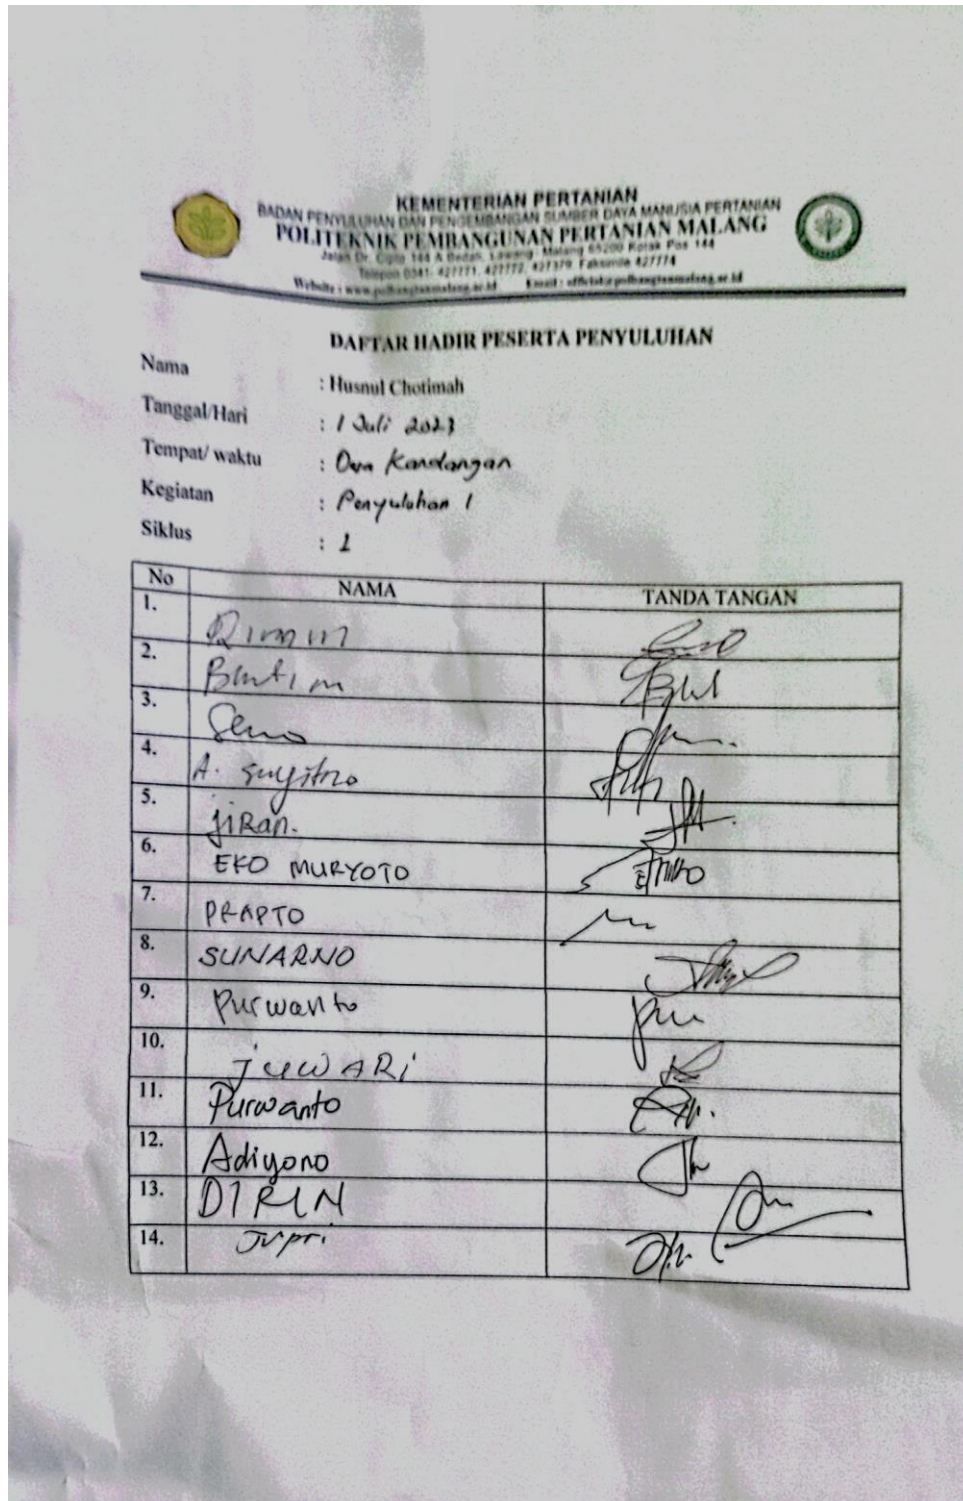 KEMENTERIAN PERTANIAN
BADAN PENYULUHAN DAN PENGEMBANGAN SUMBER DAYA MANUSIA PERTANIAN
POLITEKNIK PEMBANGUNAN PERTANIAN MALANG
Jalan Dr. Cipto 144 A Bedali, Lawang - Malang 65200 Kotak Pos 144
Telepon 0341- 427771, 427772, 427379 Faksimile 427774
Website : www.polbangtanmalang.ac.id Email : official@polbangtanmalang.ac.id
DAFTAR HADIR PESERTA PENYULUHAN
Nama : Husnul Chotimah
Tanggal/Hari : 1 Juli 2023
Tempat/ waktu : Kandangan
Kegiatan : Penyuluhan 1
Siklus : 1
No NAMA TANDA TANGAN
1.
2.
3. Seno
4. A. Suyitno
5. jiRan.
6. EKO MURYOTO
7. PRAPTO
8. SUNARNO
9. Purwanto
10. JUWARi
11. Purwanto
12. Adiyono
13. DIRIN
14. Jupri